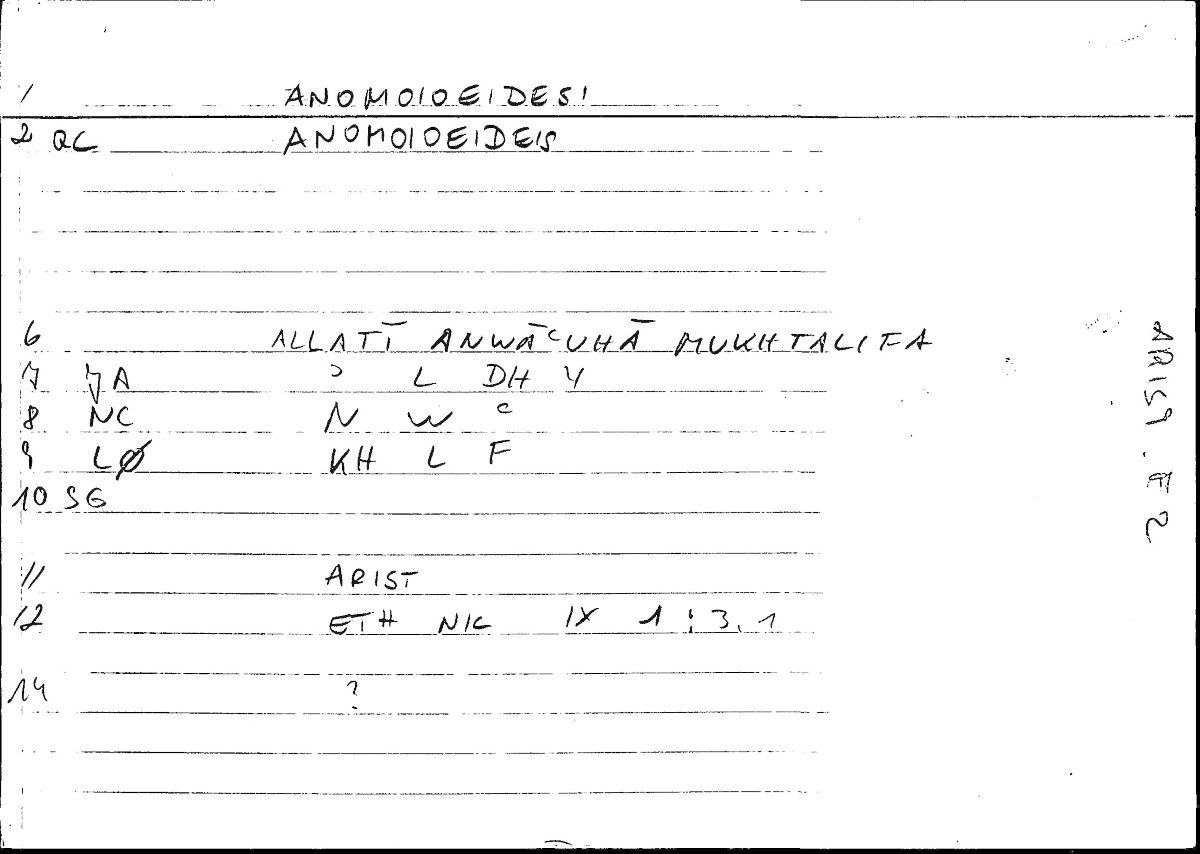 1 ANOMOIOEIDESI
2 QC ANOMOIOEIDEIS
6 ALLATĪ ANWĀʿUHĀ MUKHTALIFA
7 JA ʾ L DH Y
8 NC N W ʿ
9 LØ KH L F
10 SG
11 ARIST
12 ETH NIC IX 1 : 3.1
14 ?
ARIST.